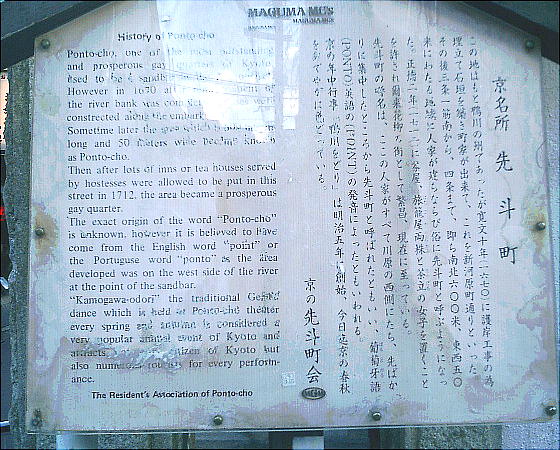 MAGUMA MC's
History of Ponto-cho
Ponto-cho, one of the most outstanding
and prosperous gay quarters of Kyoto,
used to be a sandbar
However in 1670 after
the river bank was
constracted along the embark
Sometime later the area which is
long and 50 meters wide became known
as Ponto-cho.
Then after lots of inns or tea houses served
by hostesses were allowed to be put in this
street in 1712, the area became a prosperous
gay quarter.
The exact origin of the word "Ponto-cho"
is unknown, however it is believed to have
come from the English word "point" or
the Portuguse word "ponto" as the area
developed was on the west side of the river
at the point of the sandbar.
"Kamogawa-odori" the traditional
dance which is held at Ponto-cho theater
every spring and autumn is considered a
very popular annual event of Kyoto and
attracts citizen of Kyoto but
also numerous tourists for every perform-
ance.
The Resident's Association of Ponto-cho
京名所 先斗町
この地はもと鴨川の州であったが寛文十年(一六七〇)に護岸工事の為
埋立て石垣を築き町家が出来て、これを新河原町通りといった。
その後三条一筋南から、四条まで、即ち南北六〇〇米、東西五〇
米にわたる地域に人家が建ちならび俗に先斗町と呼ぶようになっ
た。正徳二年(一七一二)に茶屋、旅籠屋両株と茶立の女子を置くこと
を許され爾来花柳の街として繁昌、現在に至っている。
先斗町の呼名は、ここの人家がすべて川原の西側にたち、先ばか
りに集中したところから先斗町と呼ばれたともいい、葡萄牙語
(PONTO)英語の(POINT)の発音によったともいわれる。
京の年中行事「鴨川をどり」は明治五年に創始、今日迄京の春秋
をあでやかに色どっている。
京の先斗町会